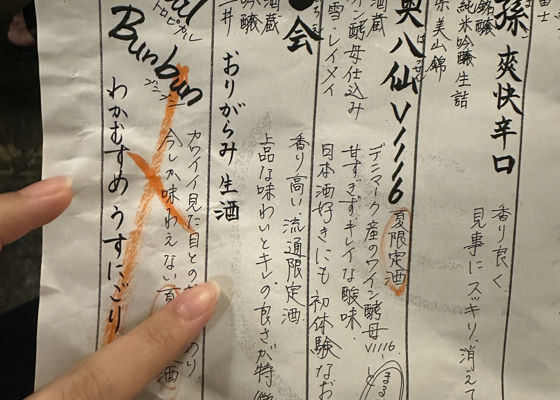 孫 爽快辛口
純米吟醸生詰
美山錦
香り良く
見事にスッキリ消えて
奥八仙 V1116
夏限定酒
酒蔵
イン酵母仕込み
雪・レイメイ
デンマーク産のワイン酵母V1116
甘すぎずキレイな酸味
日本酒好きにも初体験なお
会
おりがらみ 生酒
酒蔵
吟醸
香り高い流通限定酒
上品な味わいとキレの良さが特徴
トロピカル
Bunbun
ブンブン
わかむすめ うすにごり
カワイイ見た目との
今しか味わえない夏
酒